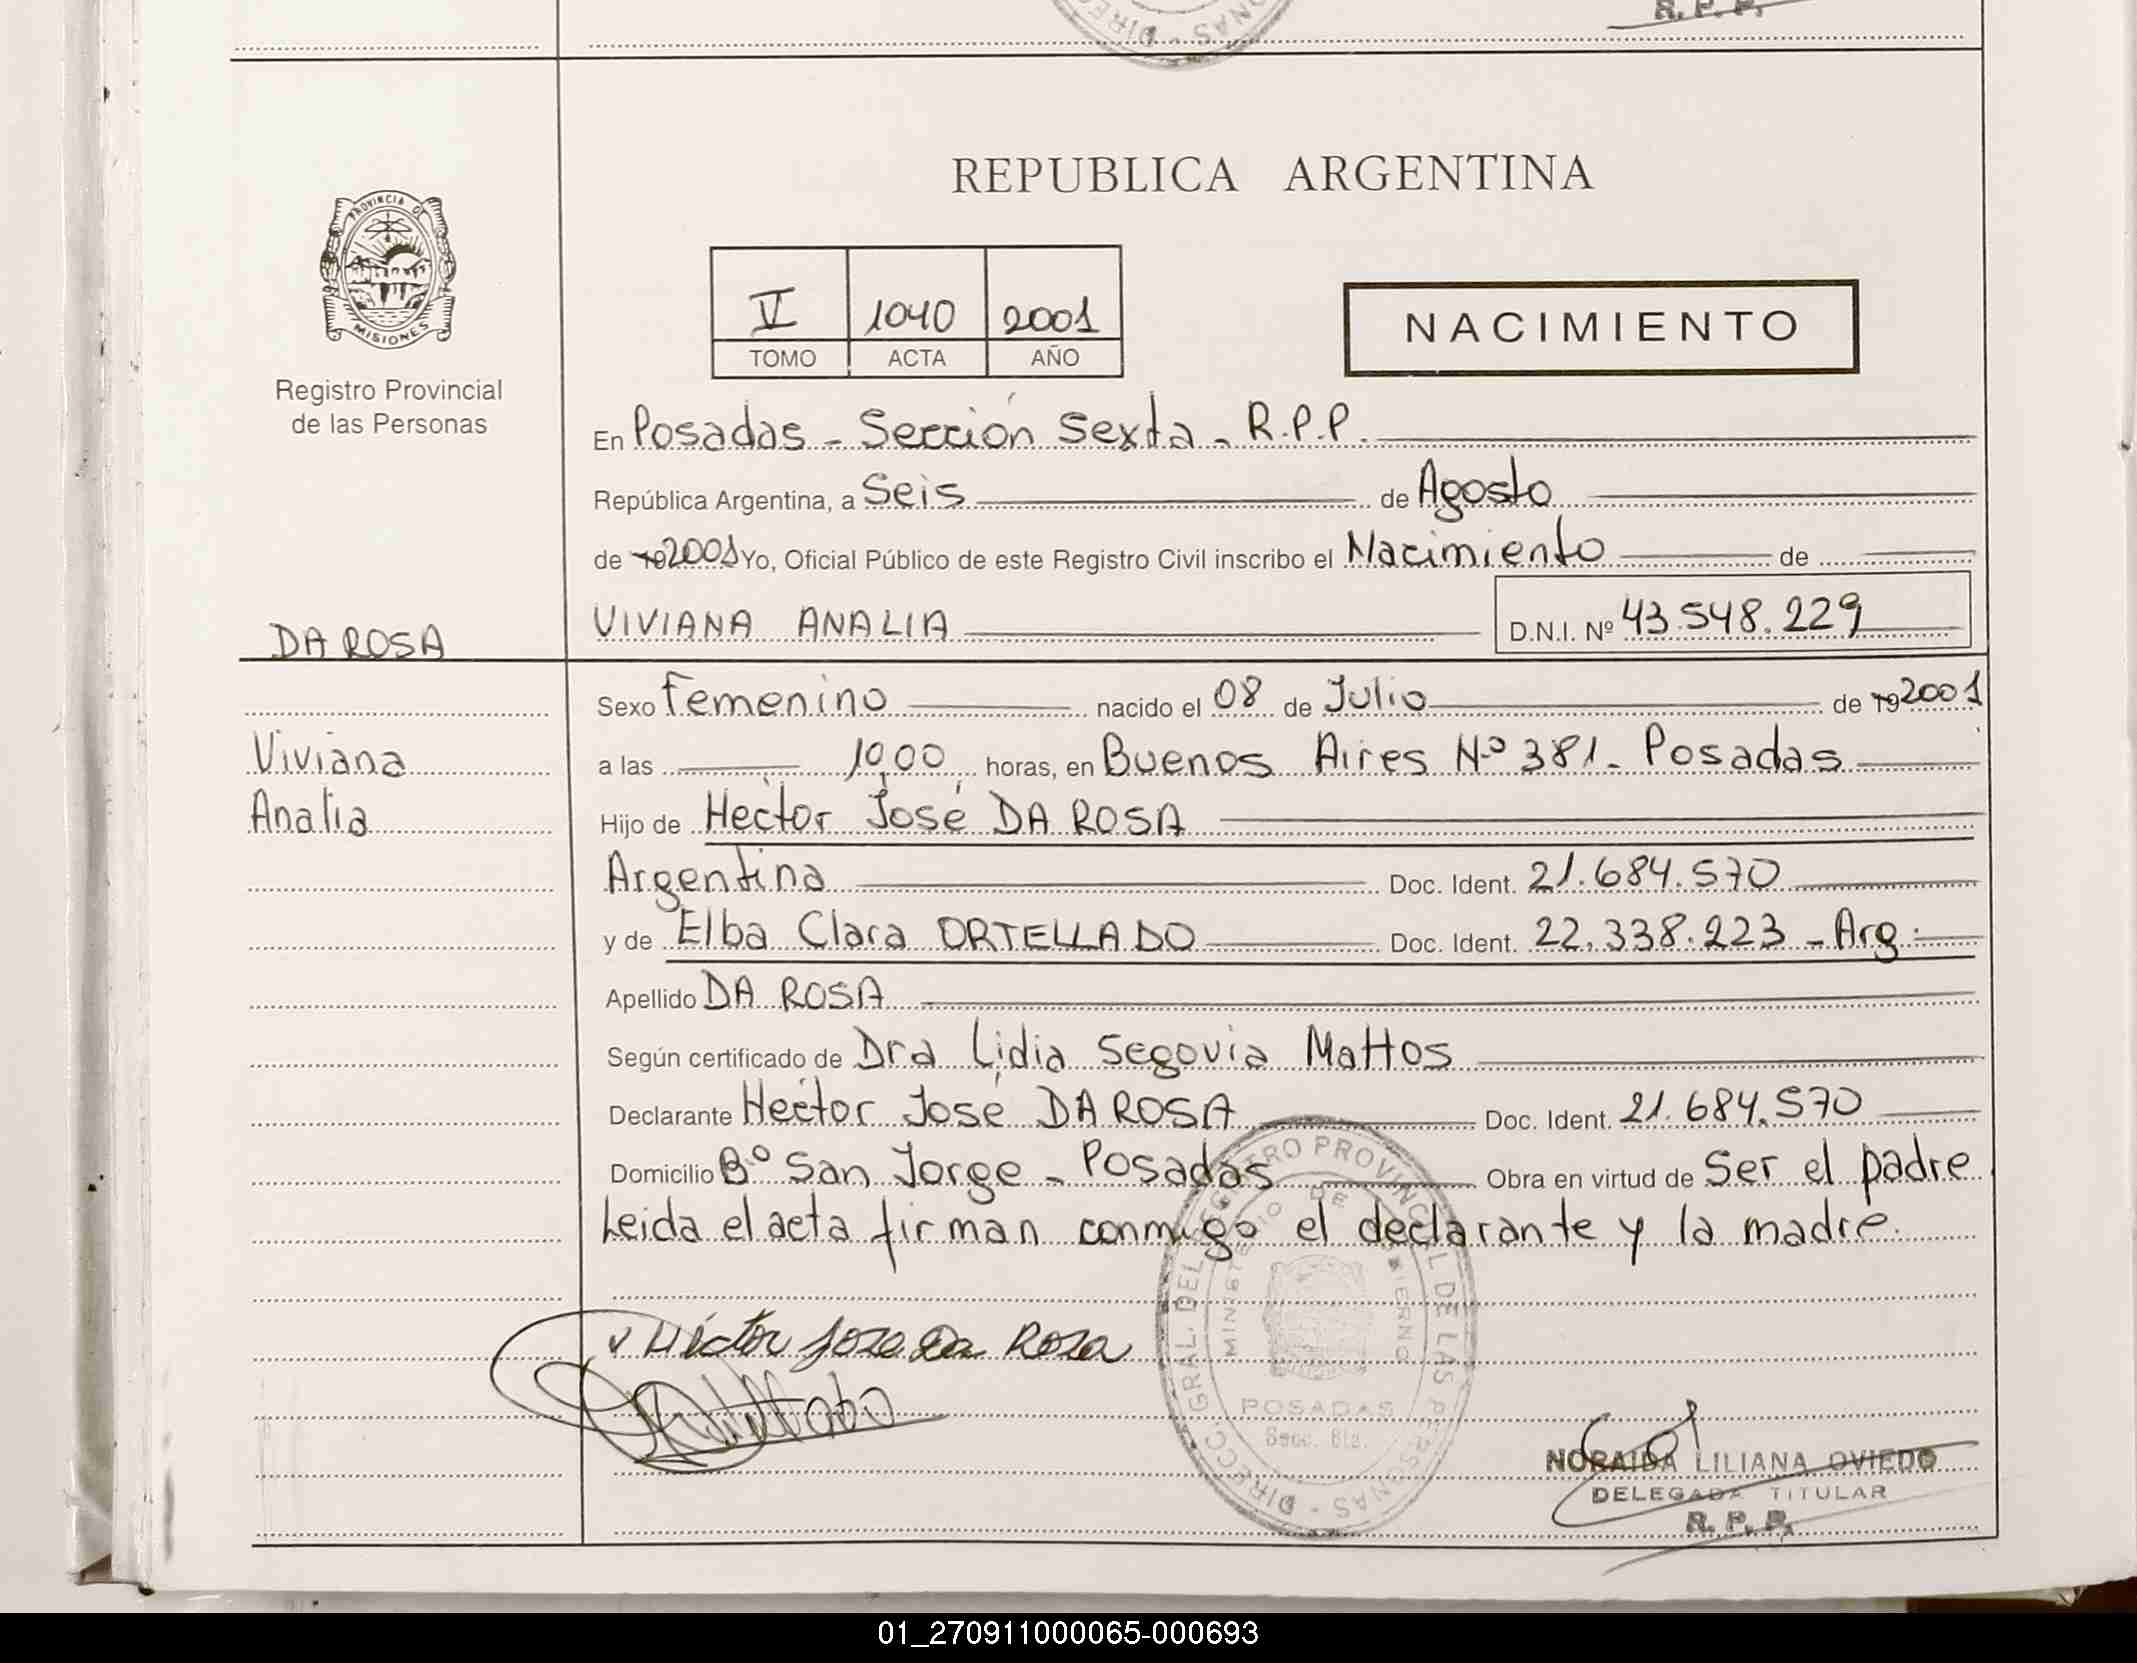 R. P. P.
DIRECC
NAS
REPUBLICA ARGENTINA
PROVINCIA DE
MISIONES
Registro Provincial
de las Personas
V 1040 2001
TOMO ACTA AÑO
NACIMIENTO
En Posadas - Sección Sexta - R.P.P.
República Argentina, a Seis de Agosto
de 19 2001 Yo, Oficial Público de este Registro Civil inscribo el Nacimiento de
DA ROSA
VIVIANA ANALIA D.N.I. Nº 43.548.229
Sexo Femenino nacido el 08 de Julio de 19 2001
Viviana
a las 10,00 horas, en Buenos Aires Nº 381 - Posadas
Analia
Hijo de Héctor José DA ROSA
Argentina Doc. Ident. 21.684.570
y de Elba Clara ORTELLADO Doc. Ident. 22.338.223 - Arg.
Apellido DA ROSA
Según certificado de Dra Lidia Segovia Mattos
Declarante Héctor José DA ROSA Doc. Ident. 21.684.570
Domicilio Bº San Jorge - Posadas Obra en virtud de Ser el padre
Leida el acta firman conmigo el declarante y la madre.
Héctor Jose Da Rosa
DIRECC. GRAL. DEL REGISTRO PROVINCIAL DE LAS PERSONAS
MINISTERIO DE GOBIERNO
POSADAS
Secc. 6ta.
NORAIDA LILIANA OVIEDO
DELEGADA TITULAR
R. P. P.
01_270911000065-000693